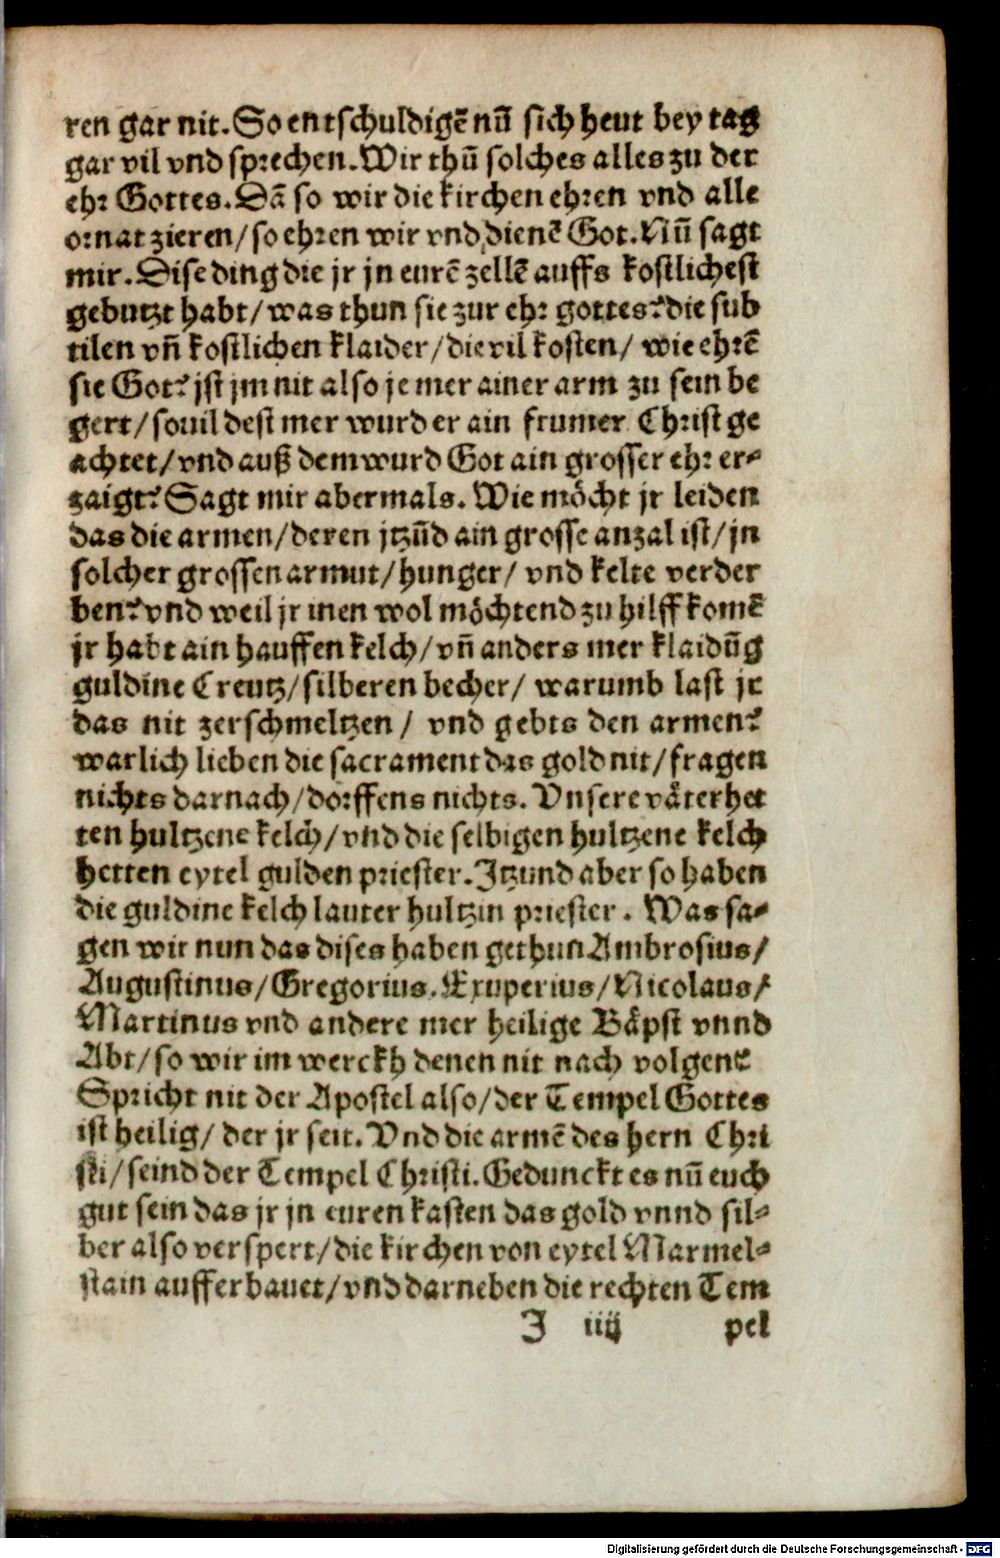 ren gar nit. So entschuldigē nū sich heut bey tag
gar vil vnd sprechen. Wir thū solches alles zu der
ehr Gottes. Dā so wir die kirchen ehren vnd alle
ornat zieren/ so ehren wir vnd dienē Got. Nū sagt
mir. Dise ding die jr jn eurē zellē auffs kostlichest
gebutzt habt/ was thun sie zur ehr gottes? die sub
tilen vn̄ kostlichen klaider/ die vil kosten/ wie ehrē
sie Got? jst jm nit also je mer ainer arm zu sein be
gert/ souil dest mer wurd er ain frumer Christ ge
achtet/ vnd auß dem wurd Got ain grosser ehr er⸗
zaigt? Sagt mir abermals. Wie möcht jr leiden
das die armen/ deren jtzūd ain grosse anzal ist/ jn
solcher grossen armut/ hunger/ vnd kelte verder
ben? vnd weil jr inen wol möchtend zu hilff komē
jr habt ain hauffen kelch/ vn̄ anders mer klaidūg
guldine Creutz/ silberen becher/ warumb last jr
das nit zerschmeltzen/ vnd gebts den armen?
warlich lieben die sacrament das gold nit/ fragen
nichts darnach/ dörffens nichts. Vnsere väter het
ten hultzene kelch/ vnd die selbigen hultzene kelch
hetten eytel gulden priester. Itzund aber so haben
die guldine kelch lauter hultzin priester. Was sa⸗
gen wir nun das dises haben gethun Ambrosius/
Augustinus/ Gregorius. Exuperius/ Nicolaus/
Martinus vnd andere mer heilige Bäpst vnnd
Abt/ so wir im werckh denen nit nach volgen?
Spricht nit der Apostel also/ der Tempel Gottes
ist heilig/ der jr seit. Vnd die armē des hern Chri
sti/ seind der Tempel Christi. Gedunckt es nū euch
gut sein das jr jn euren kasten das gold vnnd sil⸗
ber also verspert/ die kirchen von eytel Marmel⸗
stain aufferbauet/ vnd darneben die rechten Tem
J iiij pel
Digitalisierung gefördert durch die Deutsche Forschungsgemeinschaft - DFG